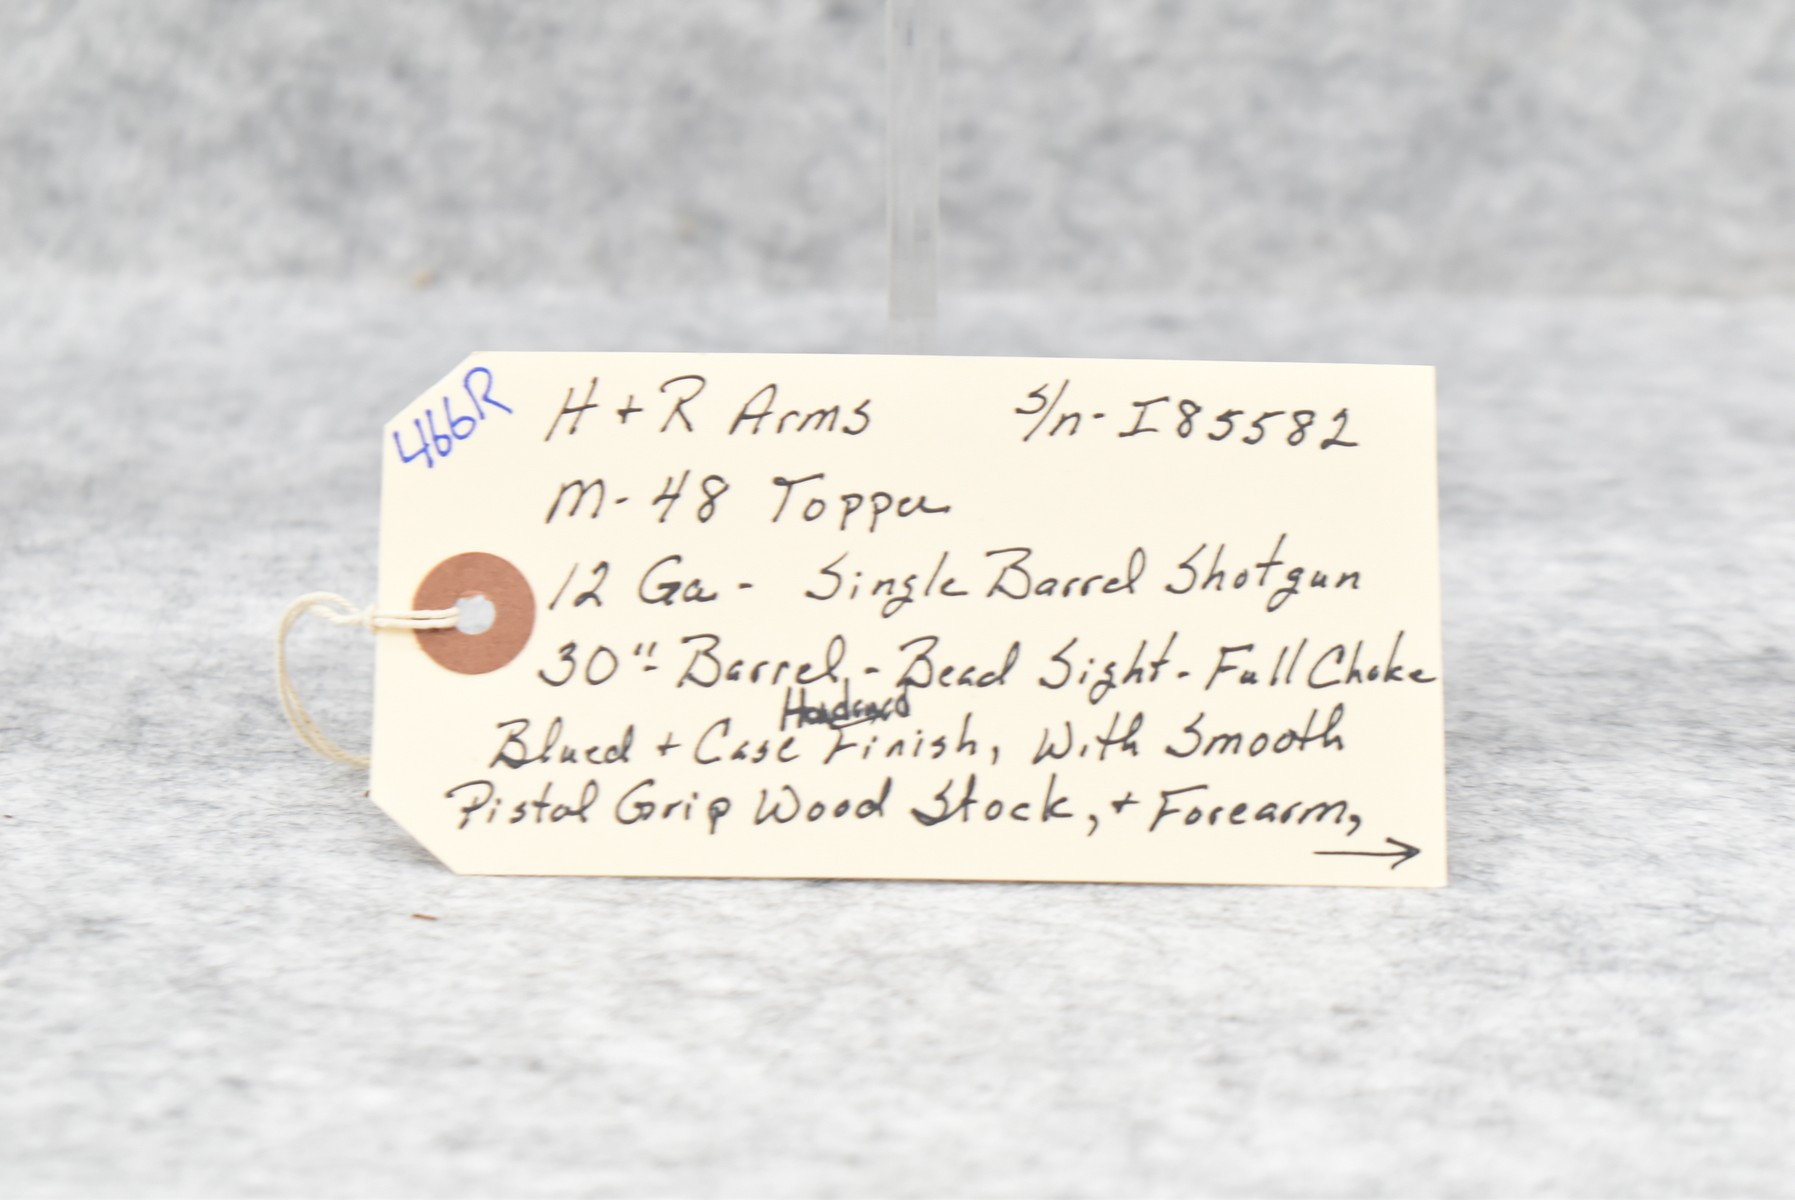 466R
H + R Arms S/n- I85582
M-48 Topper
12 Ga - Single Barrel Shotgun
30"- Barrel - Bead Sight - Full Choke
Hardened
Blued + Case Finish, With Smooth
Pistol Grip Wood Stock, + Forearm,
→